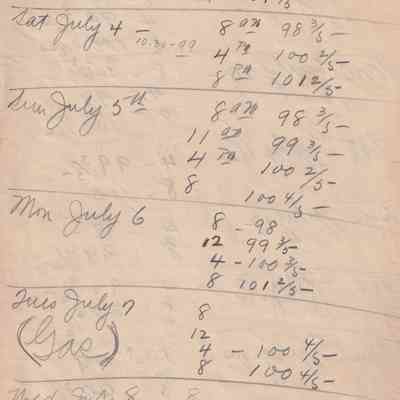 Sat July 4 — 8 am 98 3/5 —
10:30 - 99
4 PM 100 2/5 —
8 PM 101 2/5 —
Sun July 5th 8 am 98 3/5 —
11 am 99 3/5 —
4 PM 100 2/5 —
8 100 4/5 —
Mon July 6 8 - 98
12 99 3/5 —
4 - 100 3/5 —
8 101 2/5 —
Tues July 7 8
(Gas) 12
4 - 100 4/5 —
8 100 4/5 —
Wed July 8 8